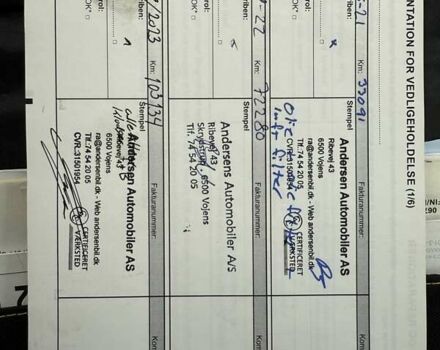 NTATION FOR VEDLIGEHOLDELSE (1/6)
-21
Km: 33091
rol:
OK*
Stempel
Fakturanummer:
Andersen Automobiler AS
Ribevej 43
6500 Vojens
ra@andersenbil.dk - Web andersenbil.dk
Tlf.: 74 54 20 05
CVR.31501954
CERTIFICERET
VÆRKSTED
Olie
luft filter
-22
Km: 72280
rol:
OK*
Stempel
Fakturanummer:
Andersens Automobiler A/S
Ribevej 43
Skrydstrup, 6500 Vojens
Tlf. 74 54 20 05
/2023
Km: 103134
trol:
OK*
Stempel
Fakturanummer:
Andersen Automobiler AS
Ribevej 43
6500 Vojens
ra@andersenbil.dk - Web andersenbil.dk
Tlf.: 74 54 20 05
CVR.31501954
CERTIFICERET
VÆRKSTED
Kom